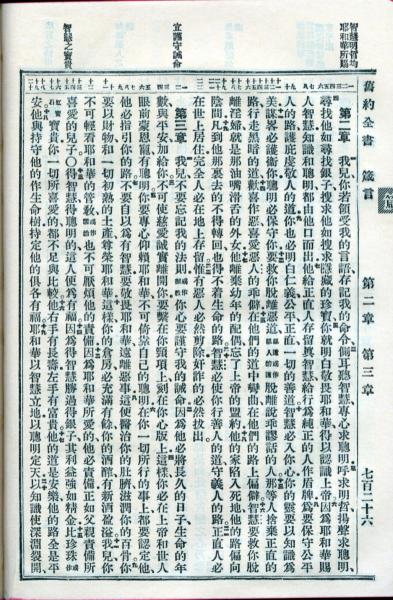 舊約全書 箴言 第二章 第三章 七百二十六
智慧明哲均
耶和華所賜
第二章 我兒你若領受我的言語存記我的命令側耳聽智慧專心求聰明呼求明哲揚聲求聰明
尋找他如尋找銀子搜求他如搜求隱藏的珍寶你就明白敬畏耶和華得以認識上帝因爲耶和華賜
人智慧知識和聰明都由他口而出他給正直人存留眞智慧給行爲純正的人作盾牌爲要保守公平
人的路護庇虔敬人的道你也必明白仁義公平正直一切的善道智慧必入你心你的靈要以知識爲
美謀畧必護衞你聰明必保守你要救你脫離惡道脫離說乖謬話的人那等人捨棄正直的
路行走黑暗的道歡喜作惡喜愛惡人的乖僻在他們的道中彎曲在他們的路上偏僻智慧要救你脫
離淫婦就是那油嘴滑舌的外女他離棄幼年的配偶忘了上帝的盟約他的家陷入死地他的路偏向
陰間凡到他那裏去的不得轉回也得不着生命的路智慧必使你行善人的道守義人的路正直人必
在世上居住完全人必在地上存留惟有惡人必然剪除奸詐的必然拔出
宜謹守誡命
第三章 我兒不要忘記我的法則你心要謹守我的誡命因爲他必將長久的日子生命的年
數與平安加給你不可使慈愛誠實離開你要繫在你頸項上刻在你心版上這樣你必在上帝和世人
眼前蒙恩寵有聰明你要專心仰賴耶和華不可倚靠自己的聰明在你一切所行的事上都要認定他
他必指引你的路不要自以爲有智慧要敬畏耶和華遠離惡事這便醫治你的肚臍滋潤你的百骨你
要以財物和一切初熟的土產尊榮耶和華這樣你的倉房必充滿有餘你的酒醡有新酒盈溢我兒你
不可輕看耶和華的管教也不可厭煩他的責備因爲耶和華所愛的他必責備正如父親責備所
智慧之寶貴
喜愛的兒子得智慧得聰明的這人便爲有福因爲得智慧勝過得銀子其利益強如精金比珍珠
寶貴你一切所喜愛的都不足與比較他右手有長壽左手有富貴他的道是安樂他的路全是平
安他與持守他的作生命樹持定他的俱各有福耶和華以智慧立地以聰明定天以知識使深淵裂開